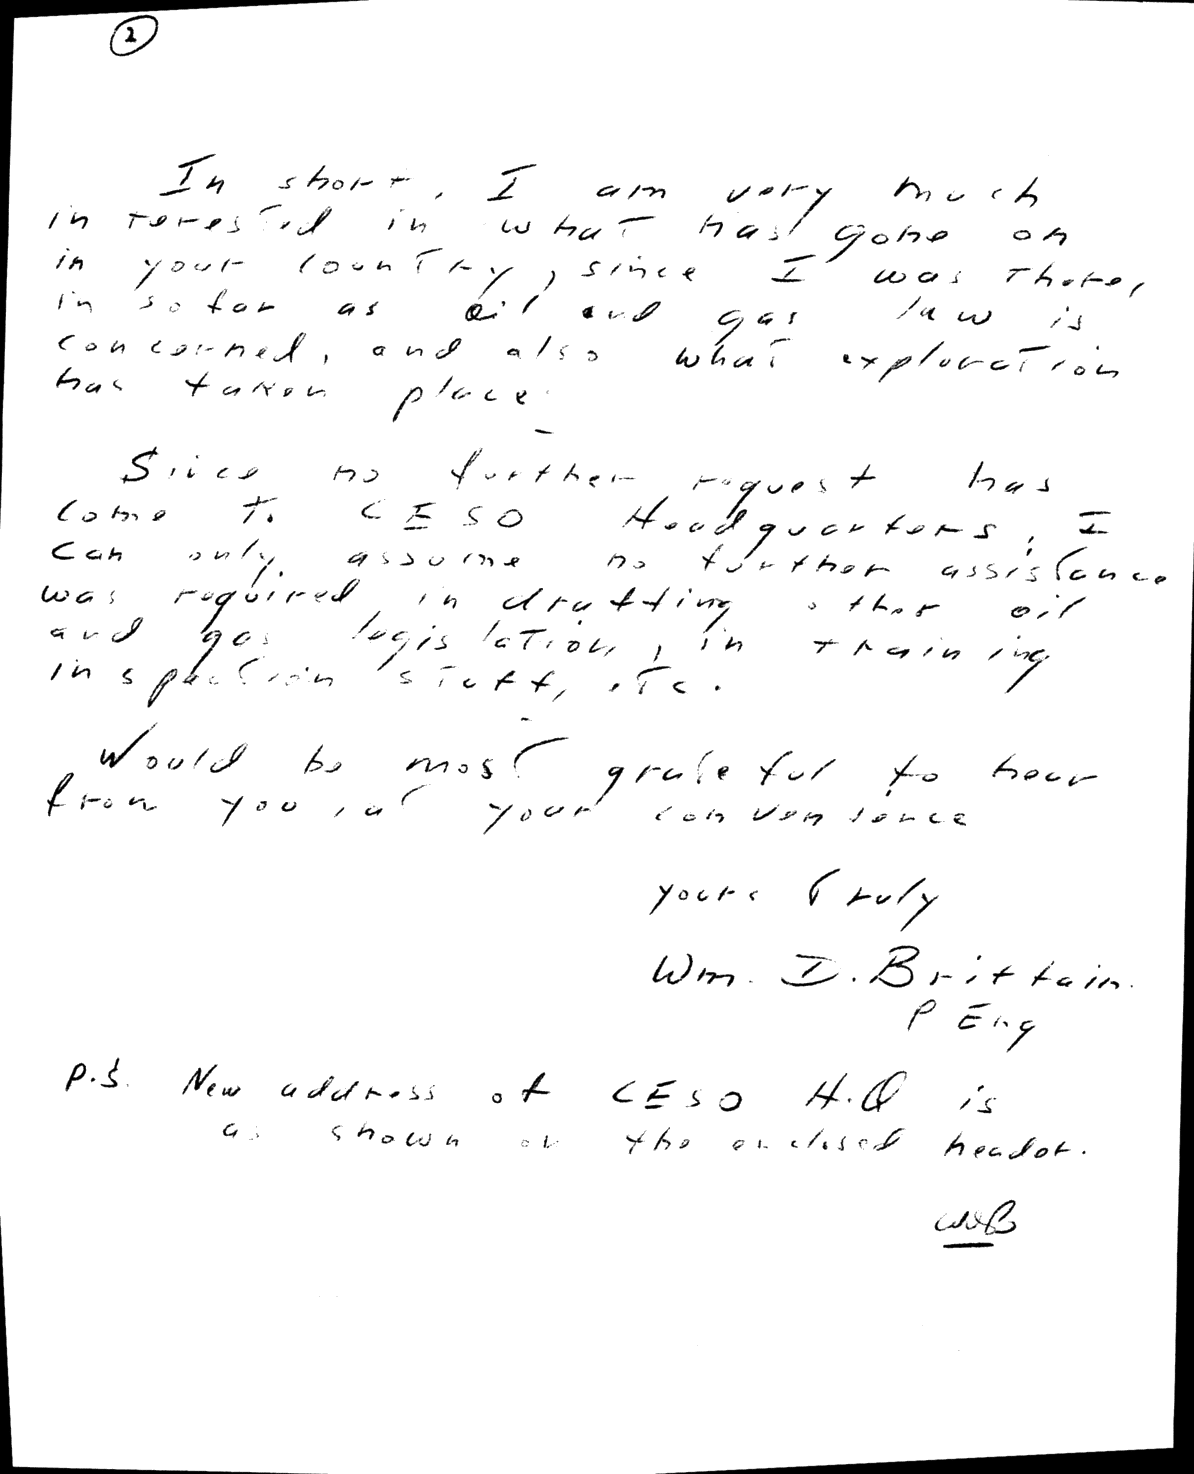 2
In short, I am very much
interested in what has gone on
in your country, since I was there,
in so far as oil and gas law is
concerned, and also what exploration
has taken place.
Since no further request has
come to CESO Headquarters, I
can only assume no further assistance
was required in drafting other oil
and gas legislation, in training
inspection staff, etc.
Would be most grateful to hear
from you, at your convenience
yours truly
Wm. I. Brittain.
P Eng
P.S. New address of CESO H.Q is
as shown on the enclosed header.
WIB